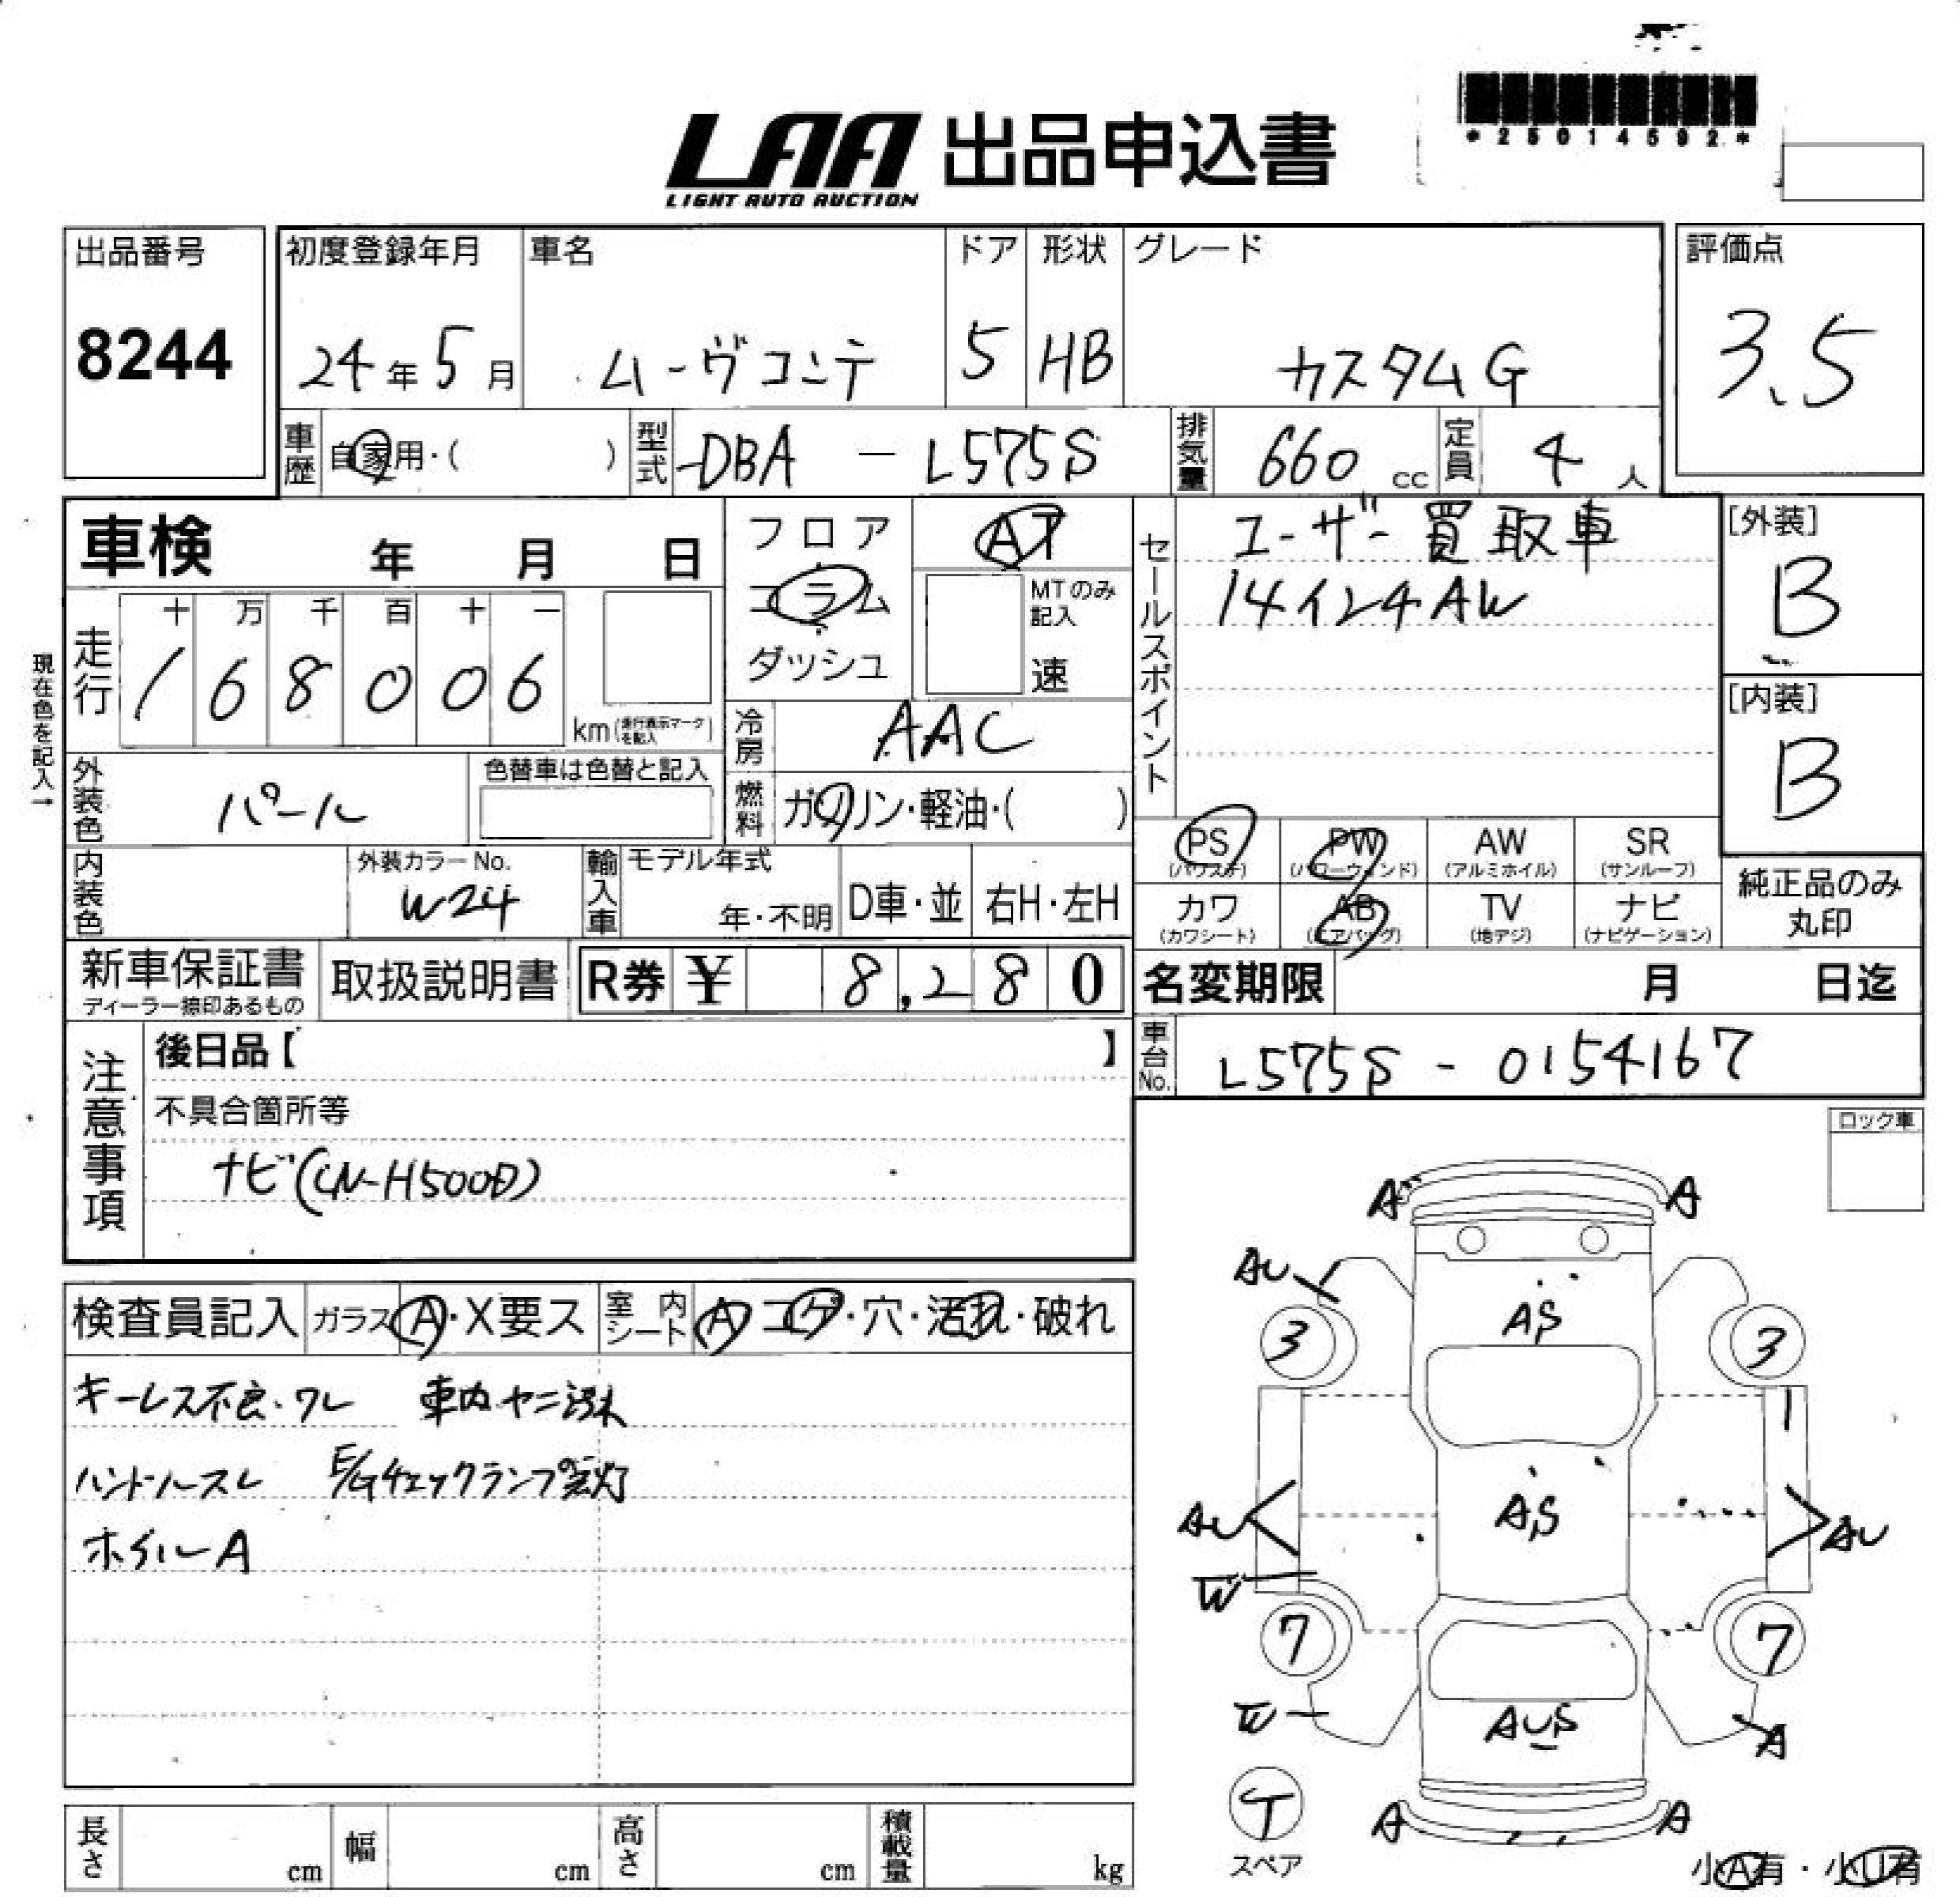 *25014592*
LAA 出品申込書
LIGHT AUTO AUCTION
出品番号 初度登録年月 車名 ドア 形状 グレード 評価点
8244 24年5月 ムーヴコンテ 5 HB カスタムG 3.5
車歴 自家用・( ) 型式 DBA - L575S 排気量 660 cc 定員 4 人
車検 年 月 日 フロア AT セールスポイント ユーザー買取車 [外装]
コラム MTのみ記入 14インチAW B
走行 十 万 千 百 十 一
168006 km(走行表示マークを記入) ダッシュ 速 [内装]
現在色を記入→
冷房 AAC B
外装色 パール 色替車は色替と記入 燃料 ガソリン・軽油・( )
PS PW AW SR
(パワステ) (パワーウィンド) (アルミホイル) (サンルーフ)
内装色 外装カラーNo. W24 輸入車 モデル年式 年・不明 D車・並 右H・左H
カワ AB TV ナビ 純正品のみ
(カワシート) (エアバッグ) (地デジ) (ナビゲーション) 丸印
新車保証書 取扱説明書 R券 ¥ 8,280 名変期限 月 日迄
ディーラー捺印あるもの
注意事項 後日品【 】 車台No. L575S - 0154167
不具合箇所等
ナビ(CN-H500D)
ロック車
検査員記入 ガラス A・X要ス 室内シート A コゲ・穴・汚れ・破れ
キーレス不良・ワレ 車内ヤニ汚れ
ハンドルスレ E/Gチェックランプ点灯
ホイルA
A A
AU
AS
3 3
AU AS AU
W
7 7
W AUS A
T
スペア
A A
小A有・小U有
長さ cm 幅 cm 高さ cm 積載量 kg